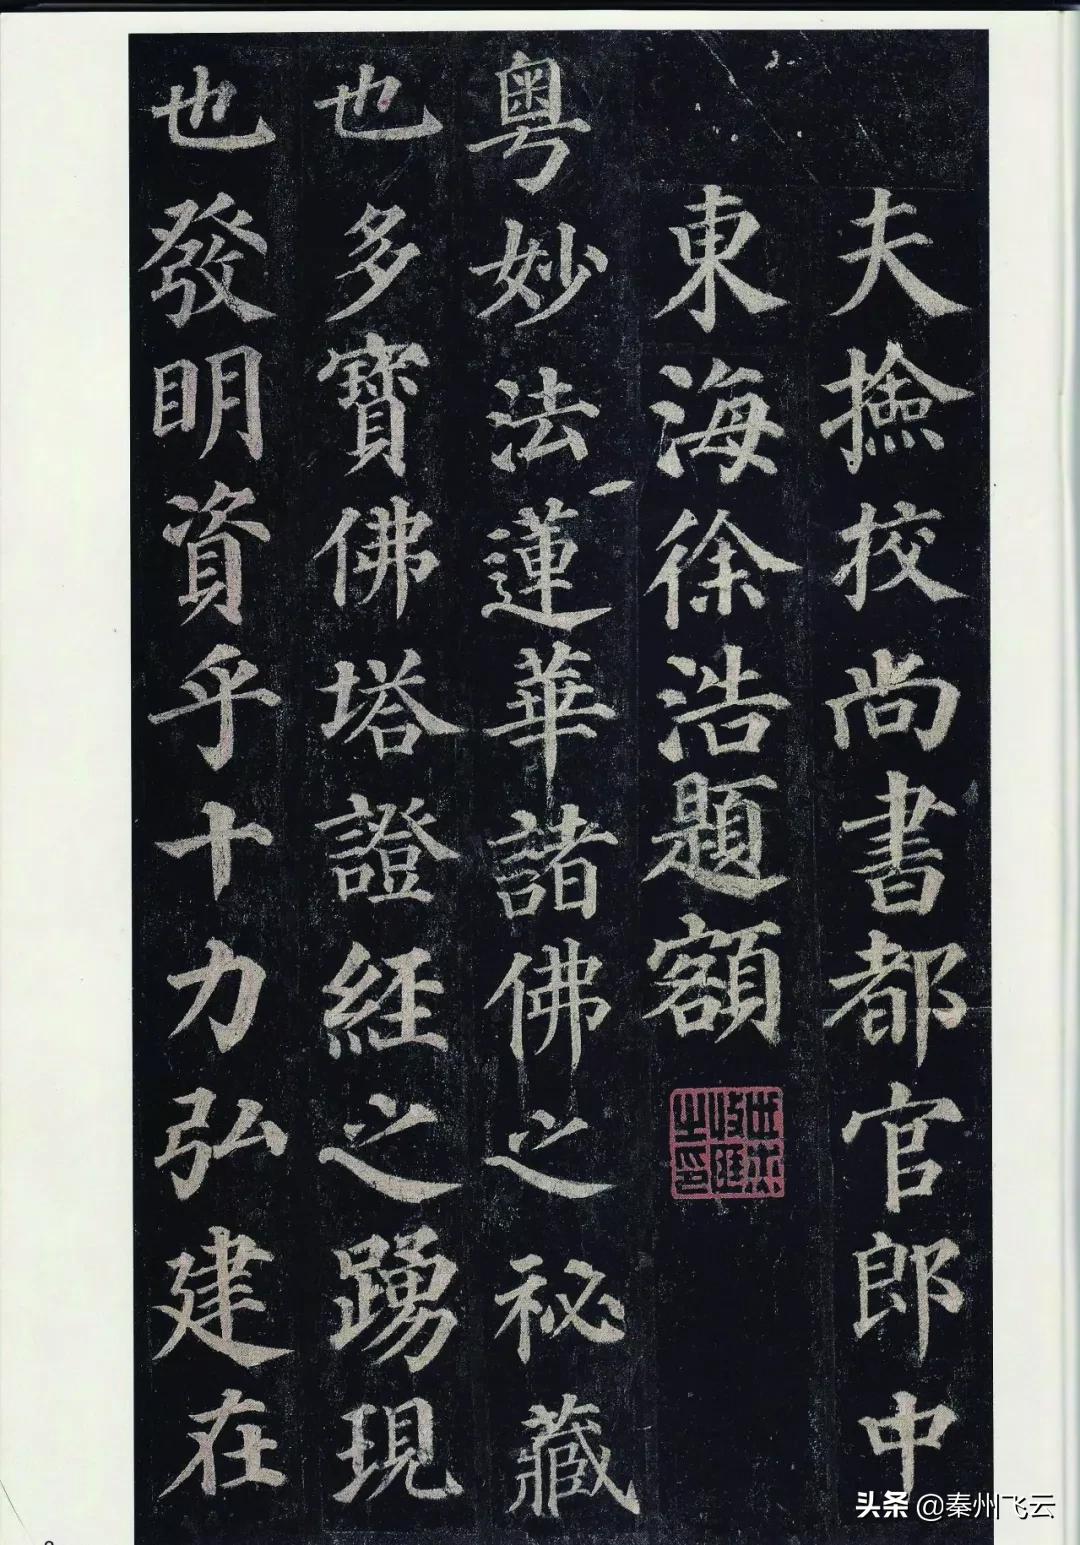 夫撿挍尚書都官郎中
東海徐浩題額
粵妙法蓮華諸佛之祕藏
也多寶佛塔證經之踴現
也發明資乎十力弘建在
头条 @秦州飞云